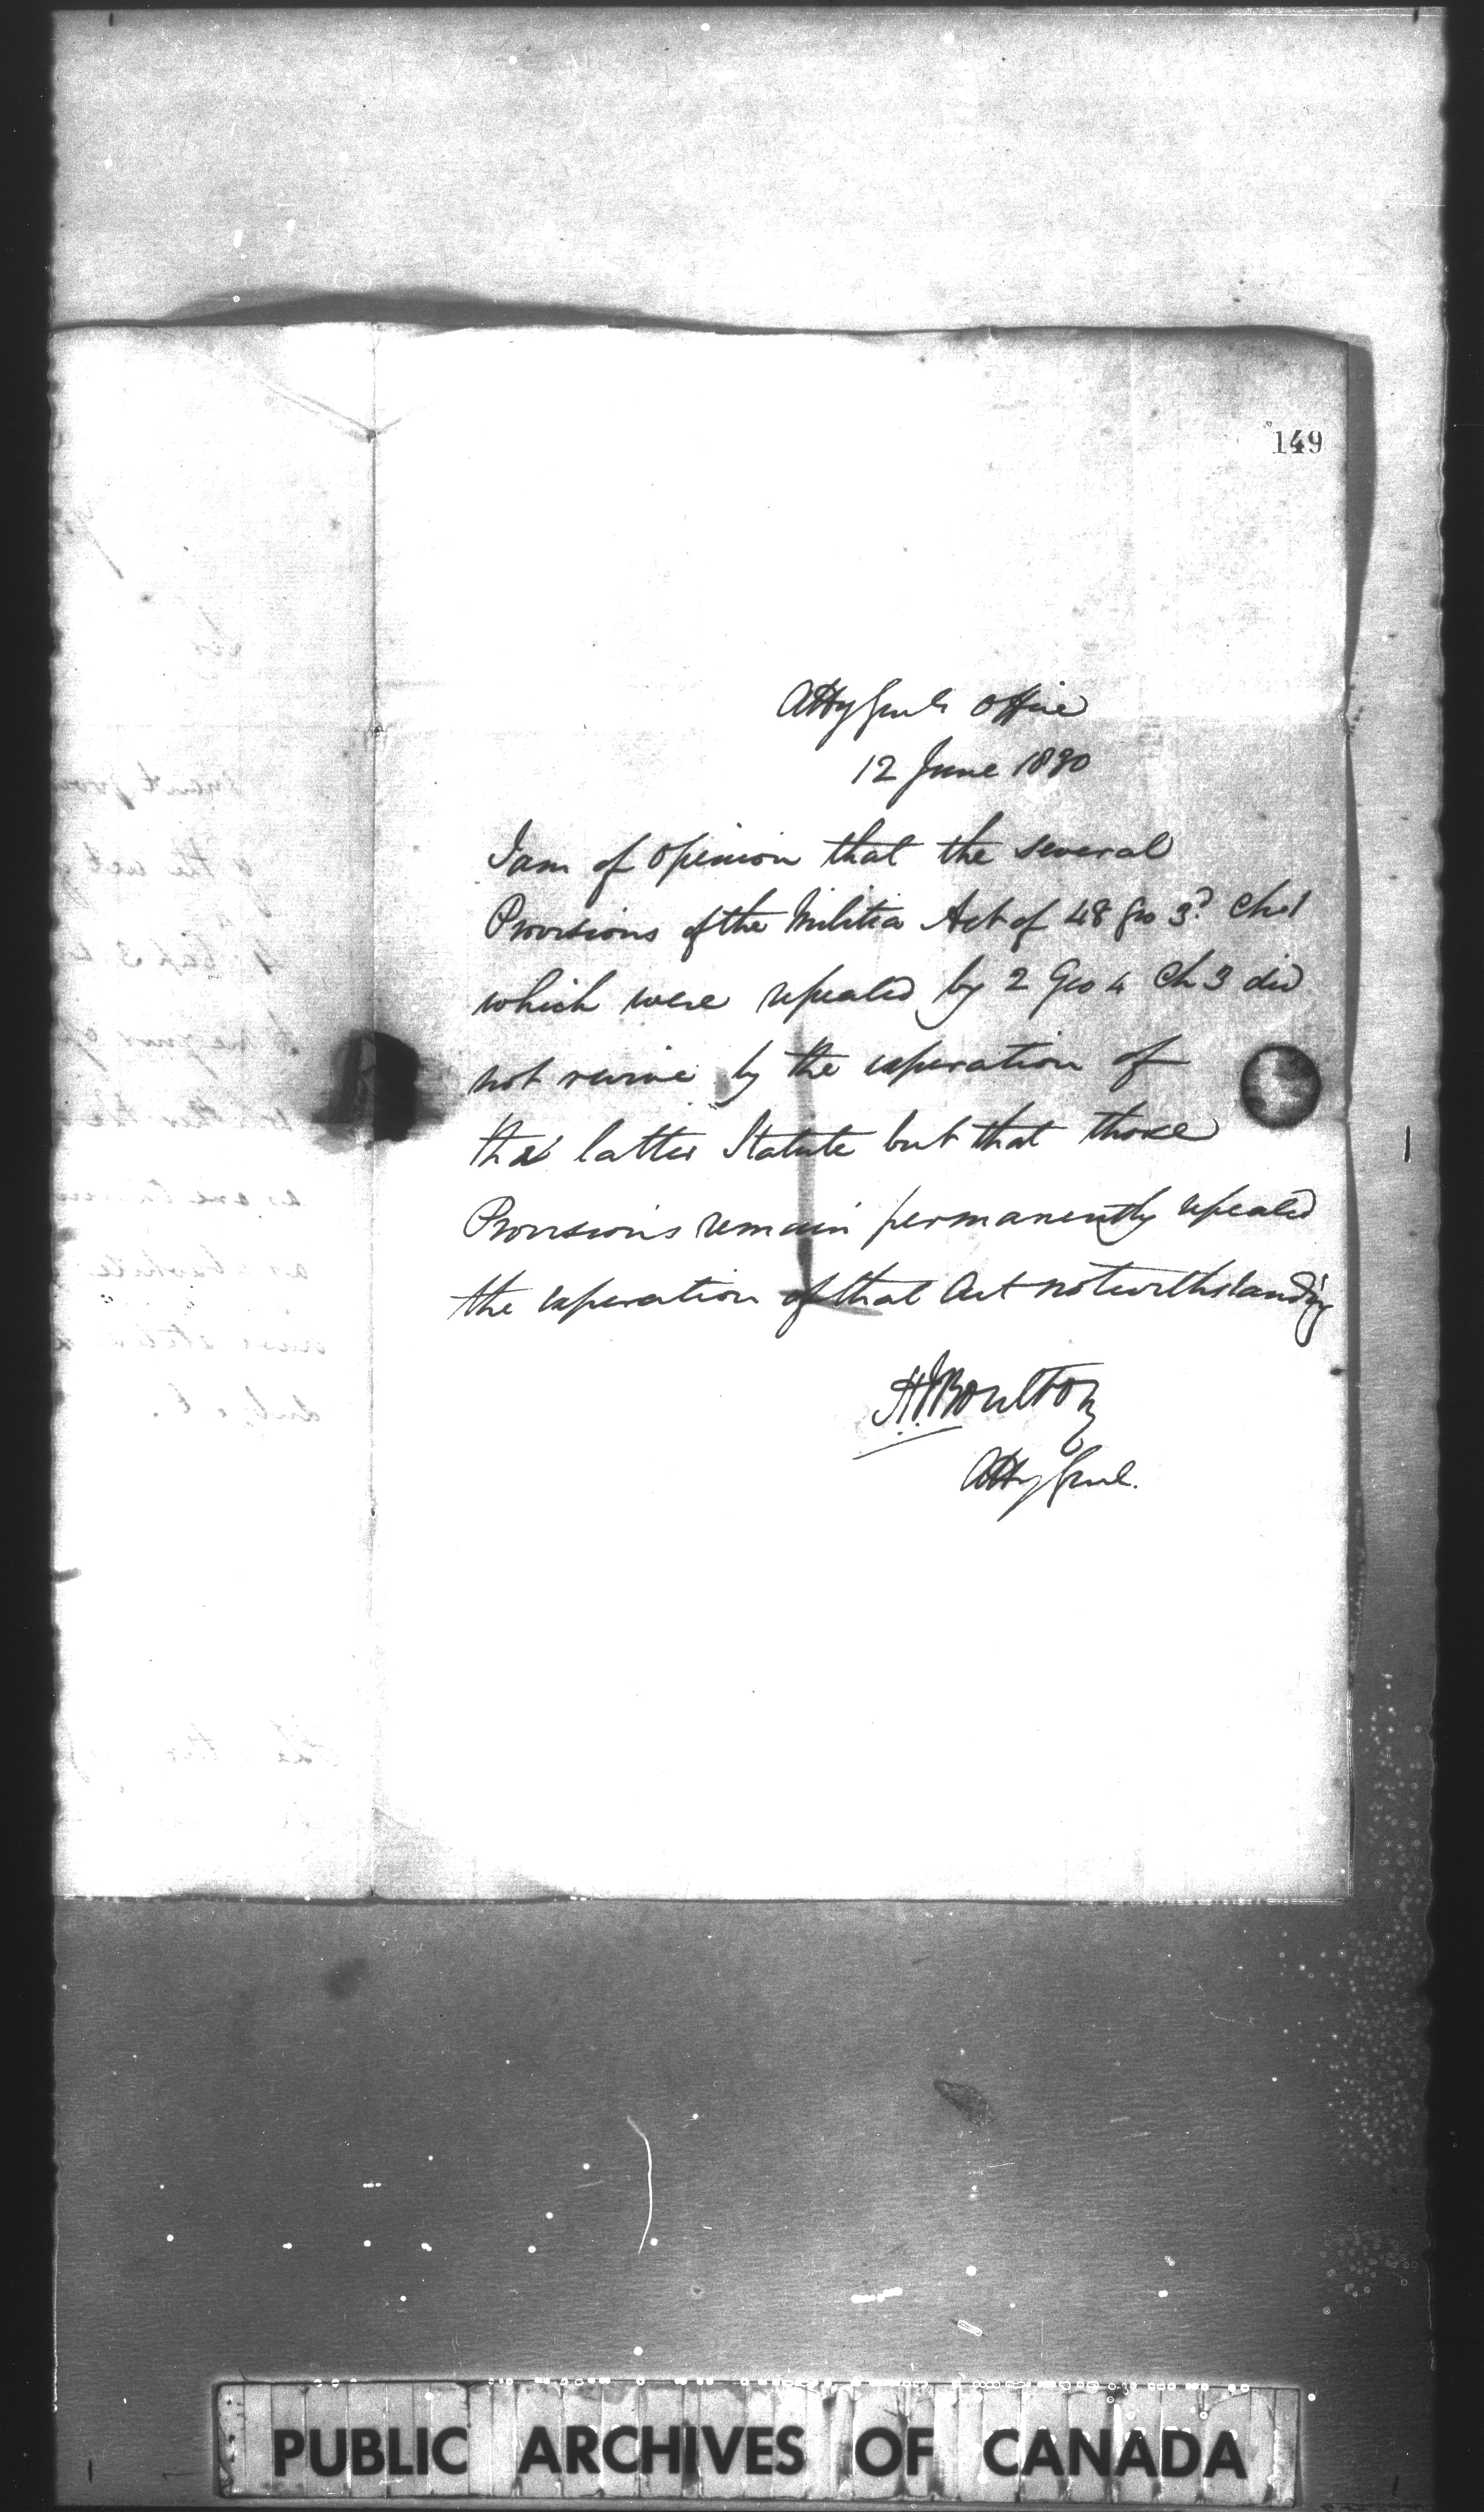 149
Atty Genls Office
12 June 1830
I am of opinion that the several
Provisions of the Militia Act of 48 Geo 3d Ch 1
which were repealed by 2 Geo 4 Ch 3 did
not revive by the expiration of
the latter Statute but that those
Provisions remain permanently repealed
the expiration of that Act notwithstanding
HJBoulton
Atty Genl.
PUBLIC ARCHIVES OF CANADA